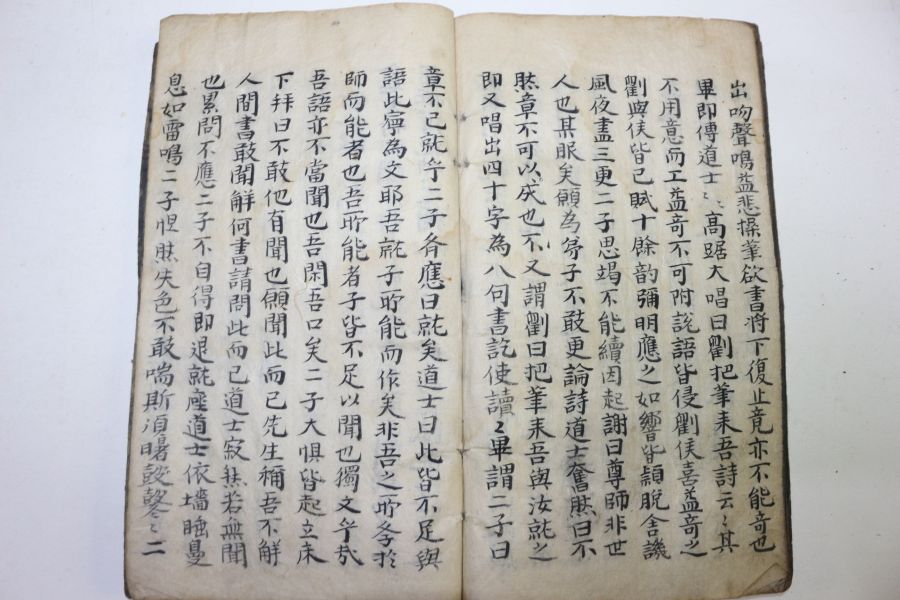 出吻聲鳴益悲操筆欲書將下復止竟亦不能奇也
畢即傳道士〻高踞大唱曰劉把筆来吾詩云〻其
不用意而工益奇不可附說語皆侵劉侯喜益奇之
劉與侯皆已賦十餘韵彌明應之如響皆穎脫含譏
風夜盡三更二子思竭不能續因起謝曰尊師非世
人也某服矣願為弟子不敢更論詩道士奮然曰不
然章不可以成也不又謂劉曰把筆来吾與汝就之
即又唱出四十字為八句書訖使讀〻畢謂二子曰
章不已就乎二子齊應曰就矣道士曰此皆不足與
語此寧為文耶吾就子所能而作矣非吾之所學於
師而能者也吾所能者子皆不足以聞也獨文乎哉
吾語亦不當聞也吾閉吾口矣二子大惧皆起立床
下拜曰不敢他有聞也願聞此而已先生稱吾不解
人間書敢聞解何書請問此而已道士寂然若無聞
也累問不應二子不自得即退就座道士依墻睡鼻
息如雷鳴二子怛然失色不敢喘斯須曙鼓鼕〻二